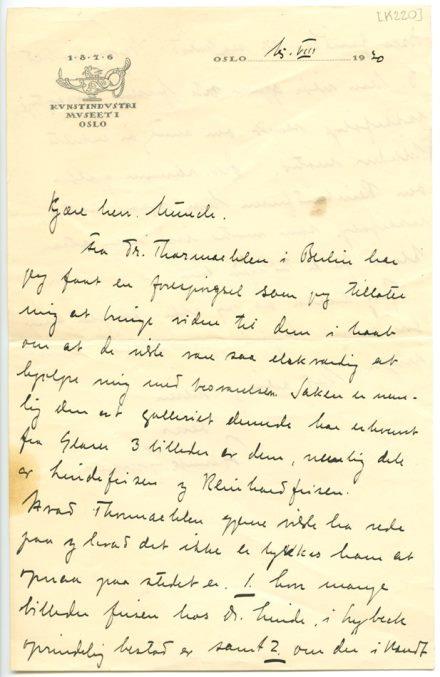 [K220]
1·8·7·6
KVNSTINDVSTRI
MVSEET I
OSLO
OSLO 15. VIII 1930
Kjære herr Munch.
Fra Dr. Thormaehlen i Berlin har
jeg faat en forespørgsel som jeg tillater
mig at bringe videre til dem i haab
om at de vilde være saa elskværdig at
hjælpe mig med besvarelsen. Saken er nem-
lig den at galleriet dernede har erhvervet
fra Glaser 3 billeder av dem, nemlig dele
av Lindefrisen og Reinhardfrisen.
Hvad Thormaehlen gjerne vilde ha rede
paa og hvad det ikke er lykkes ham at
opnaa paa stedet er 1. hvor mange
billeder frisen hos Dr. Linde, i Lybeck
oprindelig bestod av samt 2. om der i